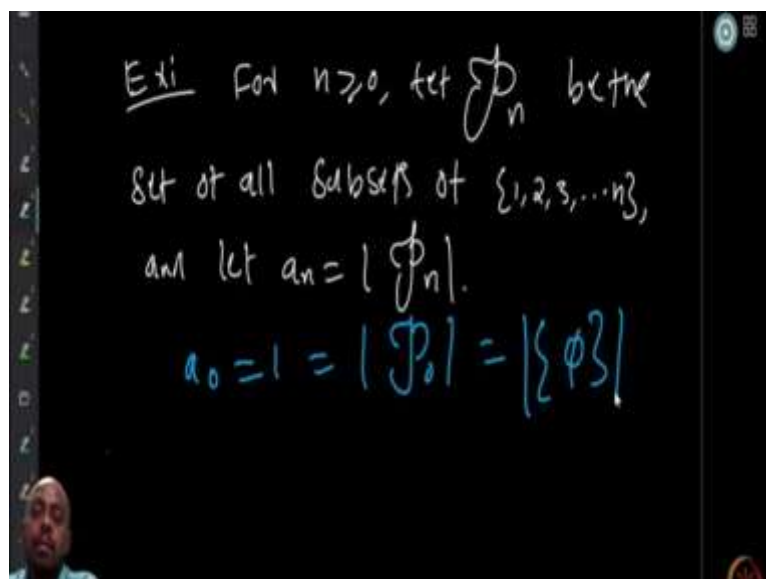 Ex: For n ≥ 0, let 𝒫n be the
set of all subsets of {1, 2, 3, ... n},
and let an = |𝒫n|.
a0 = 1 = |𝒫0| = |{φ}|